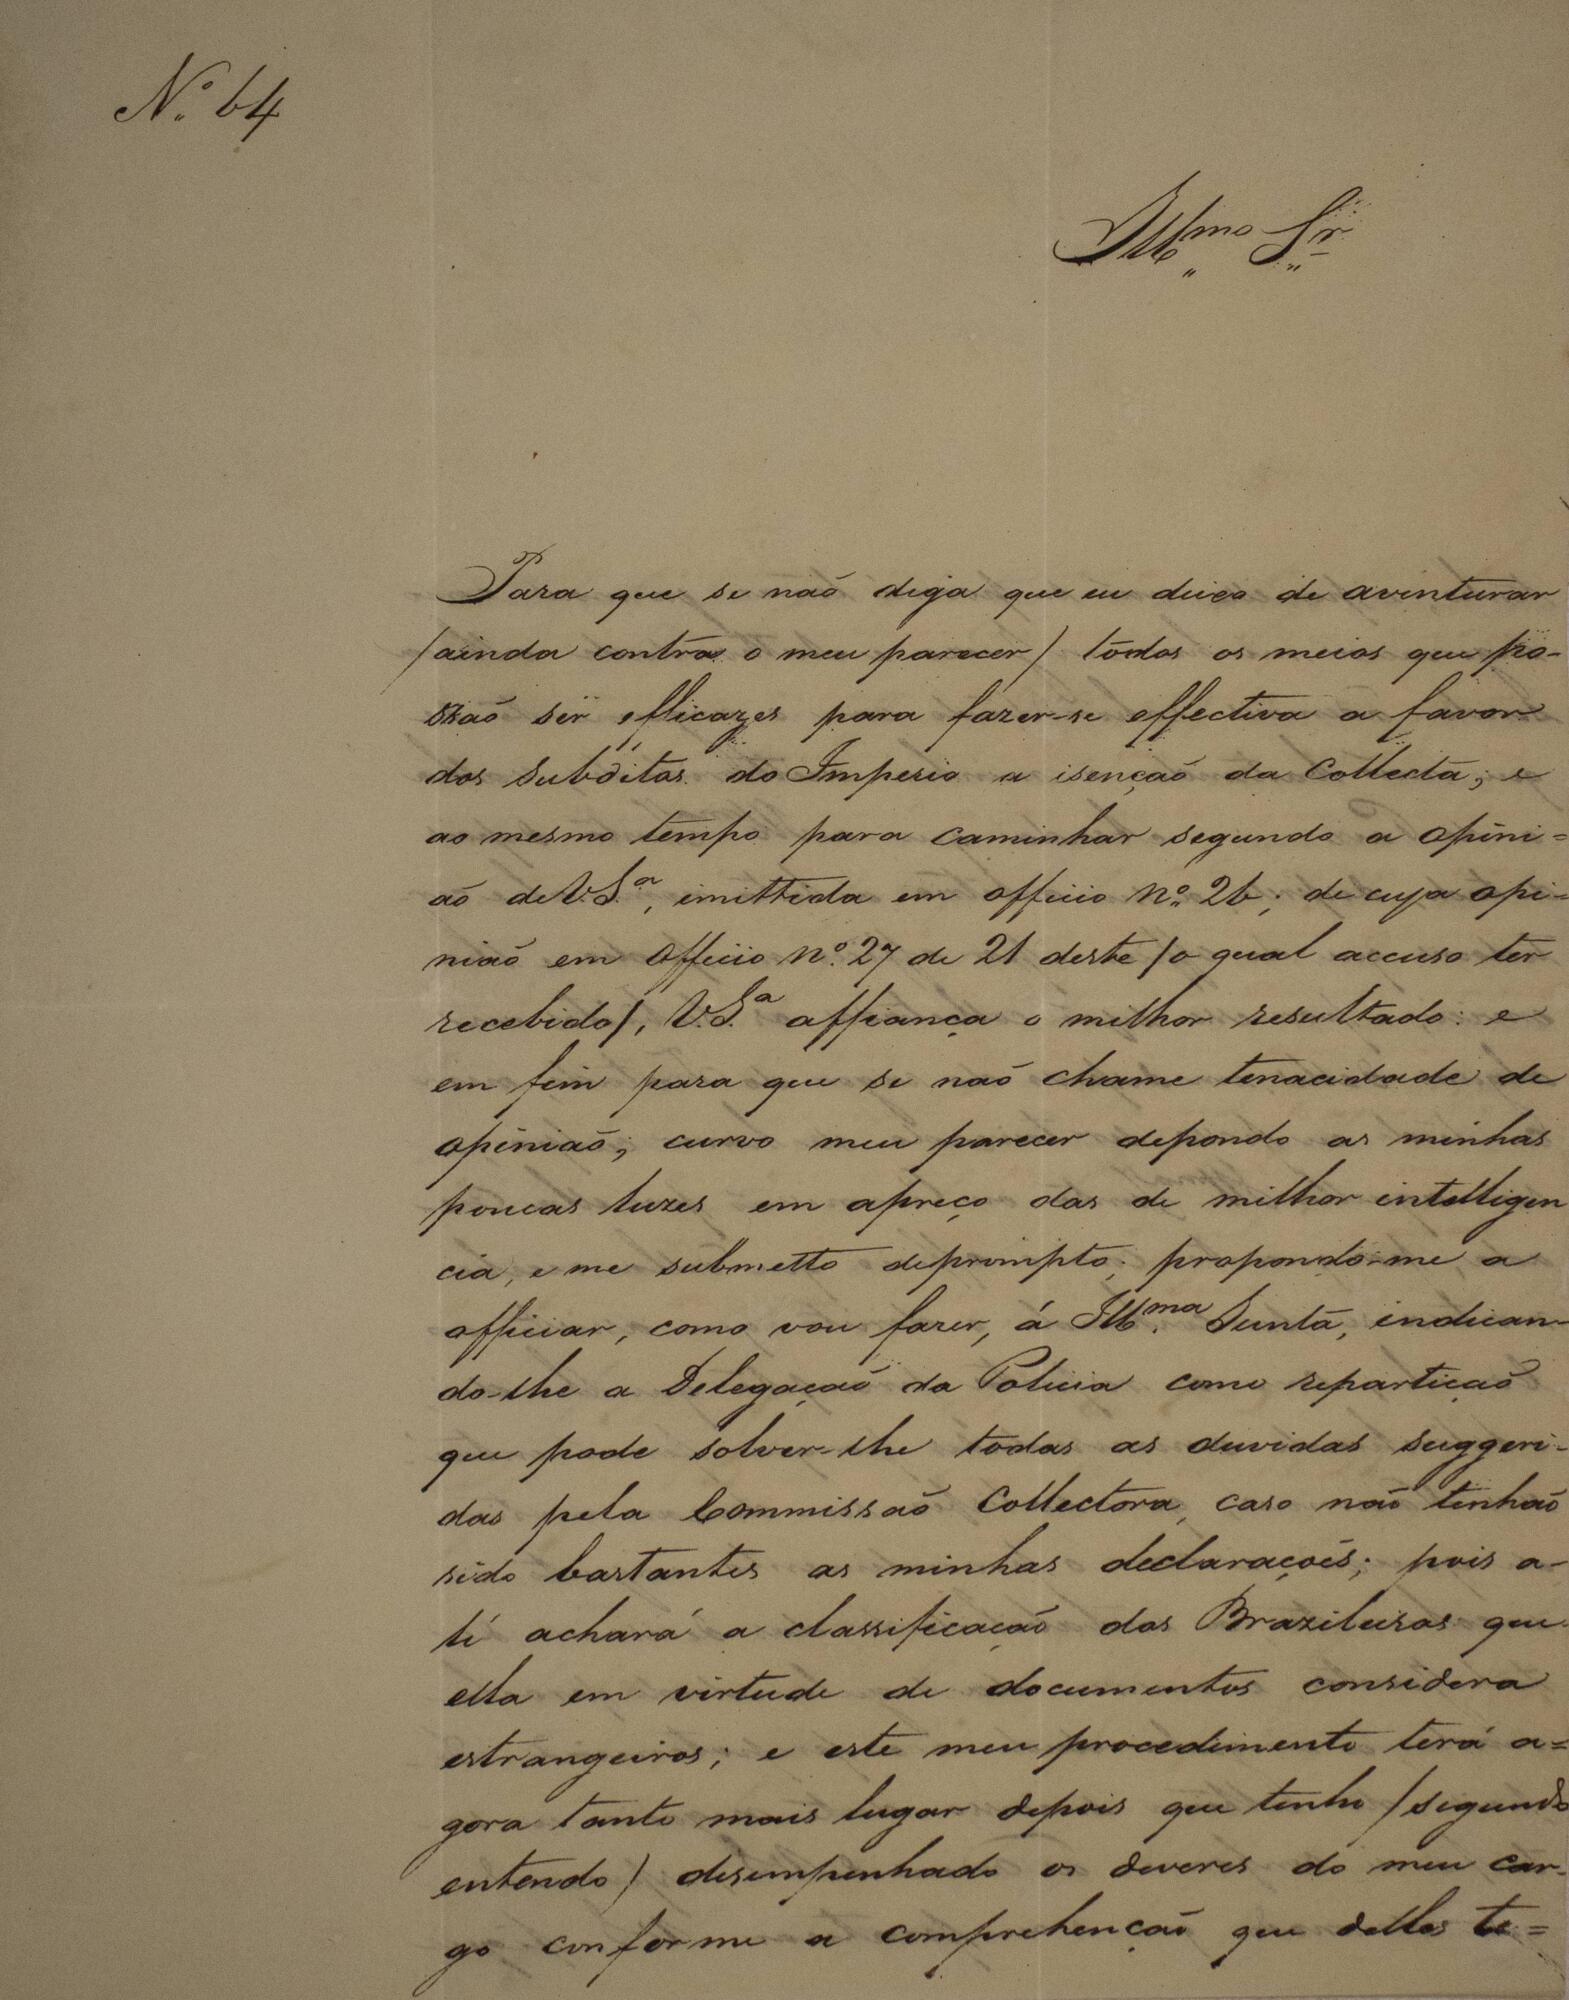 Nº 64
Illmo Sr
Para que se naõ diga que eu deixo de aventurar
/ainda contra o meu parecer/ todos os meios que po-
ssaõ ser efficazes para fazer-se effectiva a favor
dos subditos do Imperio a isençaõ da Collecta; e
ao mesmo tempo para caminhar segundo a opini=
aõ de V.Sª, emittida em officio nº 26; de cuja opi-
niaõ em officio nº 27 de 21 deste /o qual accuso ter
recebido/, V.Sª affiança o milhor resultado: e
em fim para que se naõ chame tenacidade de
opiniaõ; curvo meu parecer depondo as minhas
poucas luzes em apreço das de milhor intelligen
cia, e me submetto de prompto; propondo-me a
officiar, como vou fazer, á Illma Junta, indican-
do-lhe a Delegaçaõ da Policia como repartiçaõ
que pode solver-lhe todas as duvidas suggeri-
das pela Commissaõ Collectora, caso naõ tenhaõ
sido bastantes as minhas declaraçoẽs; pois a-
li achará a classificaçaõ dos Brazileiros que
ella em virtude de documentos considera
estrangeiros; e este meu procedimento terá a=
gora tanto mais lugar depois que tenho /segundo
entendo/ desempenhado os deveres do meu car-
go conforme a comprehençaõ que delles te=